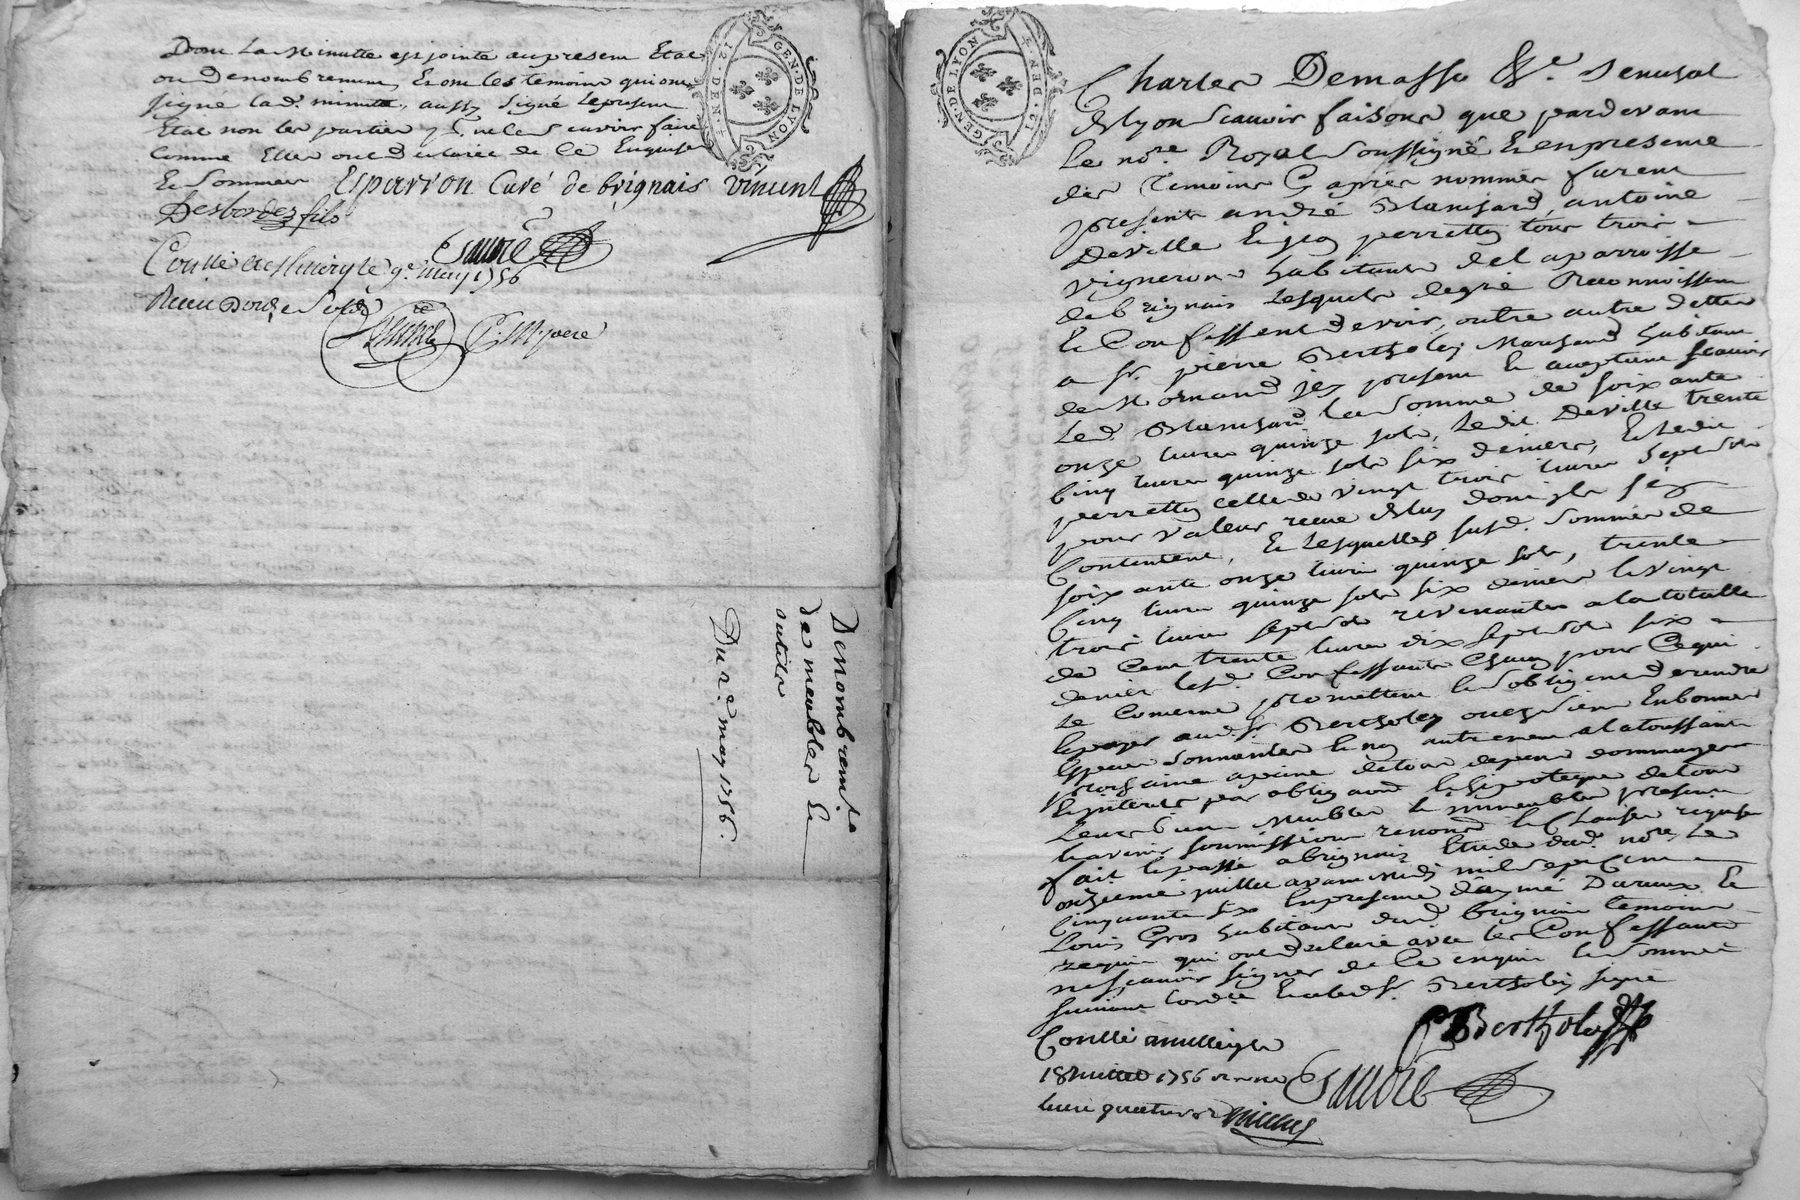 Dont La Minutte est jointe au present Etat
ou Denombrement, Et ont les temoins qui ont
signé lad. minutte, aussy signé le present
Etat non les parties p.r ne le scavoir faire
comme Elles ont declarée de Ce Enquise
Et Sommées Esparron Curé de brignais vincent
Desbordes fils
Sauvre
Conllé à le 9e. may 1756
Receu Douze Sols
GEN. DE LYON
12. DEN
Denombrem.t
de meubles Et
Du 2.e may 1756.
GEN. DE LYON
12. DEN
Charles Demasso &c. Senechal
de Lyon scavoir faisons que pardevant
Le no.re Royal soussigné Et en presence
des Temoins Cy apres nommés furent
presents andré Blanchard, antoine
Deville Et perretty tous trois
vignerons habitants de la parroisse
de brignais Lesquels de gré Reconnoissent
Et Confessent devoir, outre autre dette
a Sr. pierre Bertholey Marchand habitant
de Mornand icy present Et acceptant scavoir
Led. Blanchard La Somme de soixante
onze livres quinze sols, Ledit Deville trente
Cinq livres quinze sols six deniers, Et Ledit
perretty celle de vingt trois livres sept sols
pour valeur receue de luy dont ils se
Contentent, Et Lesquelles susd. sommes de
soixante onze livres quinze sols, trente
Cinq livres quinze sols six deniers Et vingt
trois livres sept sols revenantes a la totalle
de Cent trente livres dix sept sols six
deniers lesd. Confessants Chacun pour Ce qui
Le Concerne promettent Et s'obligent de rendre
Et payer aud. Sr. Bertholey ou es siens En bonnes
Especes sonnantes Et non autrement a la toussaint
prochaine a peine de tous depens dommages
Et interets par obligaon. Et hipoteque de tous
Leurs biens Meubles Et immeubles presents
Et avenir soumissions renonc.on Et Clauses requises
fait Et passé a brignais Etude dud. no.re Le
onzieme juillet avant midy mil sept Cent
Cinquante six En presence d'aymé Dureux Et
Louis Gros habitants dud. brignais temoins
requis qui ont declaré avec les Confessants
ne scavoir signer de Ce enquis Et sommés
suivant L'ord.ce Et a led. Sr. Bertholey signé
Bertholey
Conllé a le
18 juillet 1756
Sauvre
livre quatre